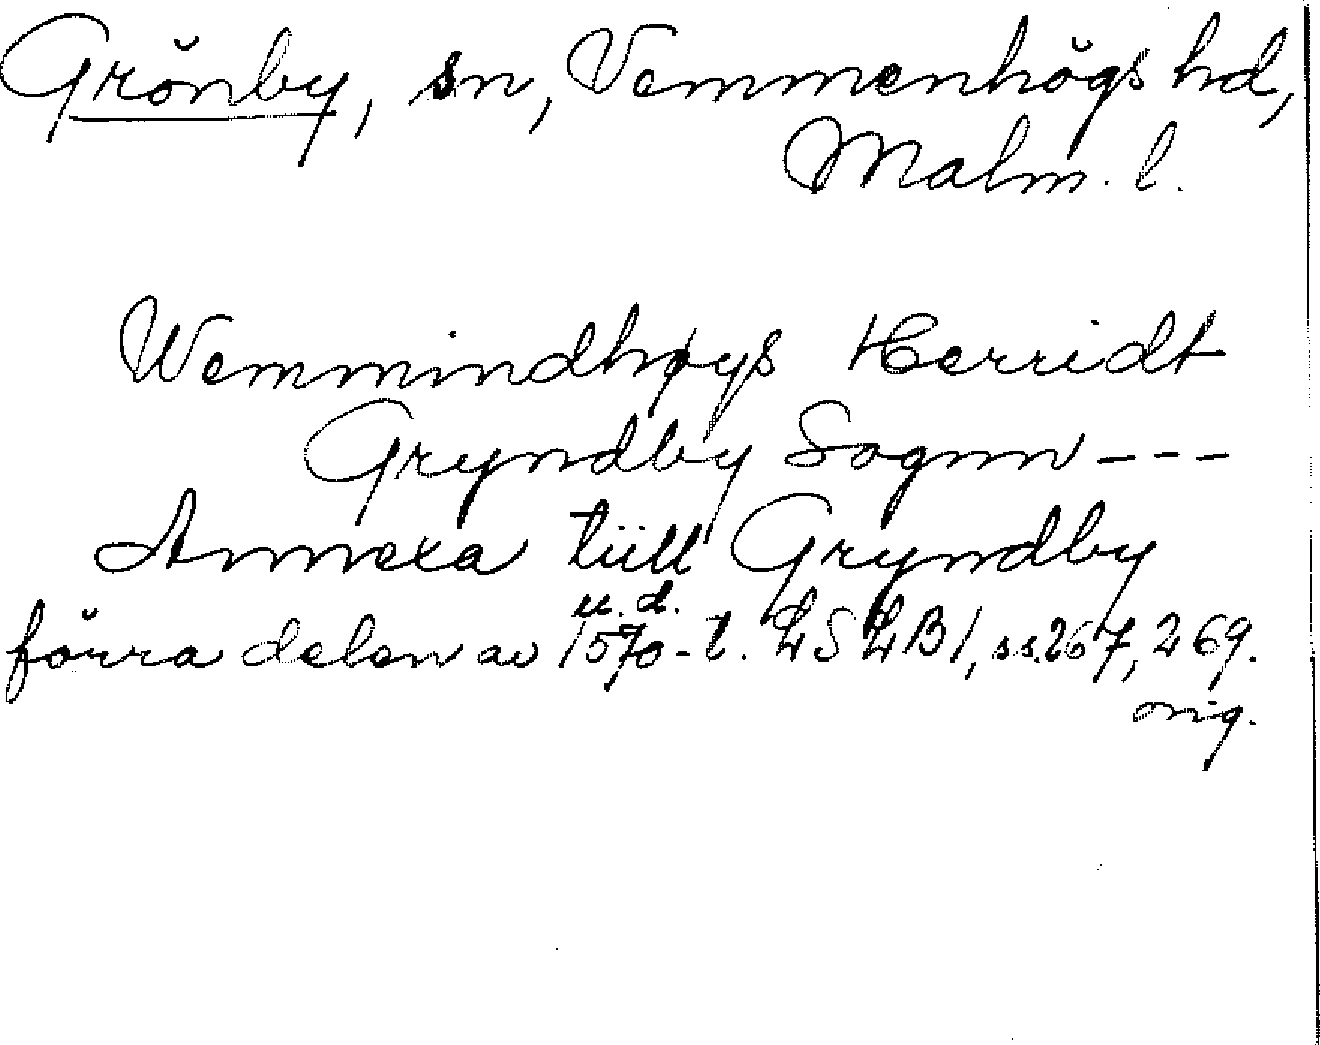 Grönby, sn, Vemmenhögs hd,
Malm. l.
Wemmindhøys Herridt
Gryndby Sognn---
Annexa tiill Gryndby
u. d.
förra delen av 1570-t. LSLB1, ss.267, 269.
orig.